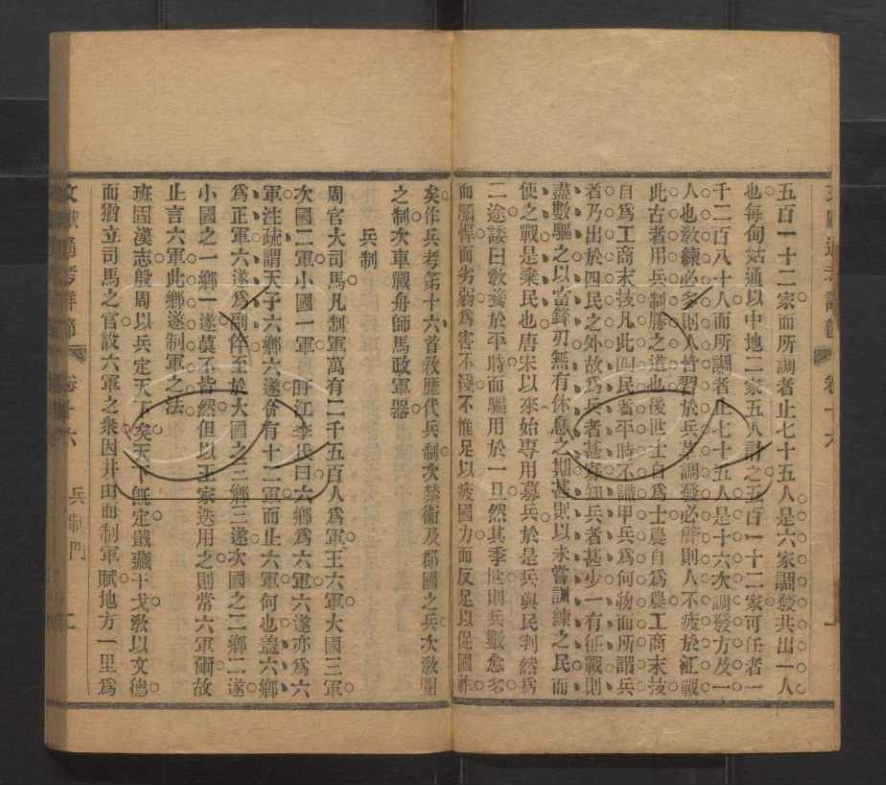 五百一十二家而所調者止七十五人是六家調發共出一人
也每甸姑通以中地二家五人計之五百一十二家可任者一
千二百八十人而所調者止七十五人是十六次調發方及一
人也教練必多則人皆習於兵革調發必簡則人不疲於征戰
此古者用兵制勝之道也後世士自爲士農自爲農工商末技
自爲工商末技凡此四民者平時不識甲兵爲何物而所謂兵
者乃出於四民之外故爲兵者甚寡知兵者甚少一有征戰則
盡數驅之以當鋒刃無有休息之期甚則以未嘗訓練之民而
使之戰是棄民也唐宋以來始專用募兵於是兵與民判然爲
二途諉曰教養於平時而驅用於一旦然其季世則兵數愈多
而驕悍而劣弱爲害不淺不惟足以疲國力而反足以促國祚
矣作兵考第十六首敘歷代兵制次禁衛及郡國之兵次教閱
之制次車戰舟師馬政軍器
兵制
周官大司馬凡制軍萬有二千五百人爲軍王六軍大國三軍
次國二軍小國一軍 盱江李氏曰六鄉爲六軍六遂亦爲六
軍注疏謂天子六鄉六遂合有十二軍而止六軍何也蓋六鄉
爲正軍六遂爲副倅至於大國之三鄉三遂次國之二鄉二遂
小國之一鄉一遂莫不皆然但以王家迭用之則常六軍爾故
止言六軍此鄉遂制軍之法
班固漢志殷周以兵定天下矣天下旣定戢藏干戈敎以文德
而猶立司馬之官設六軍之衆因井田而制軍賦地方一里爲
文獻通考詳節 卷十六 兵制門 二